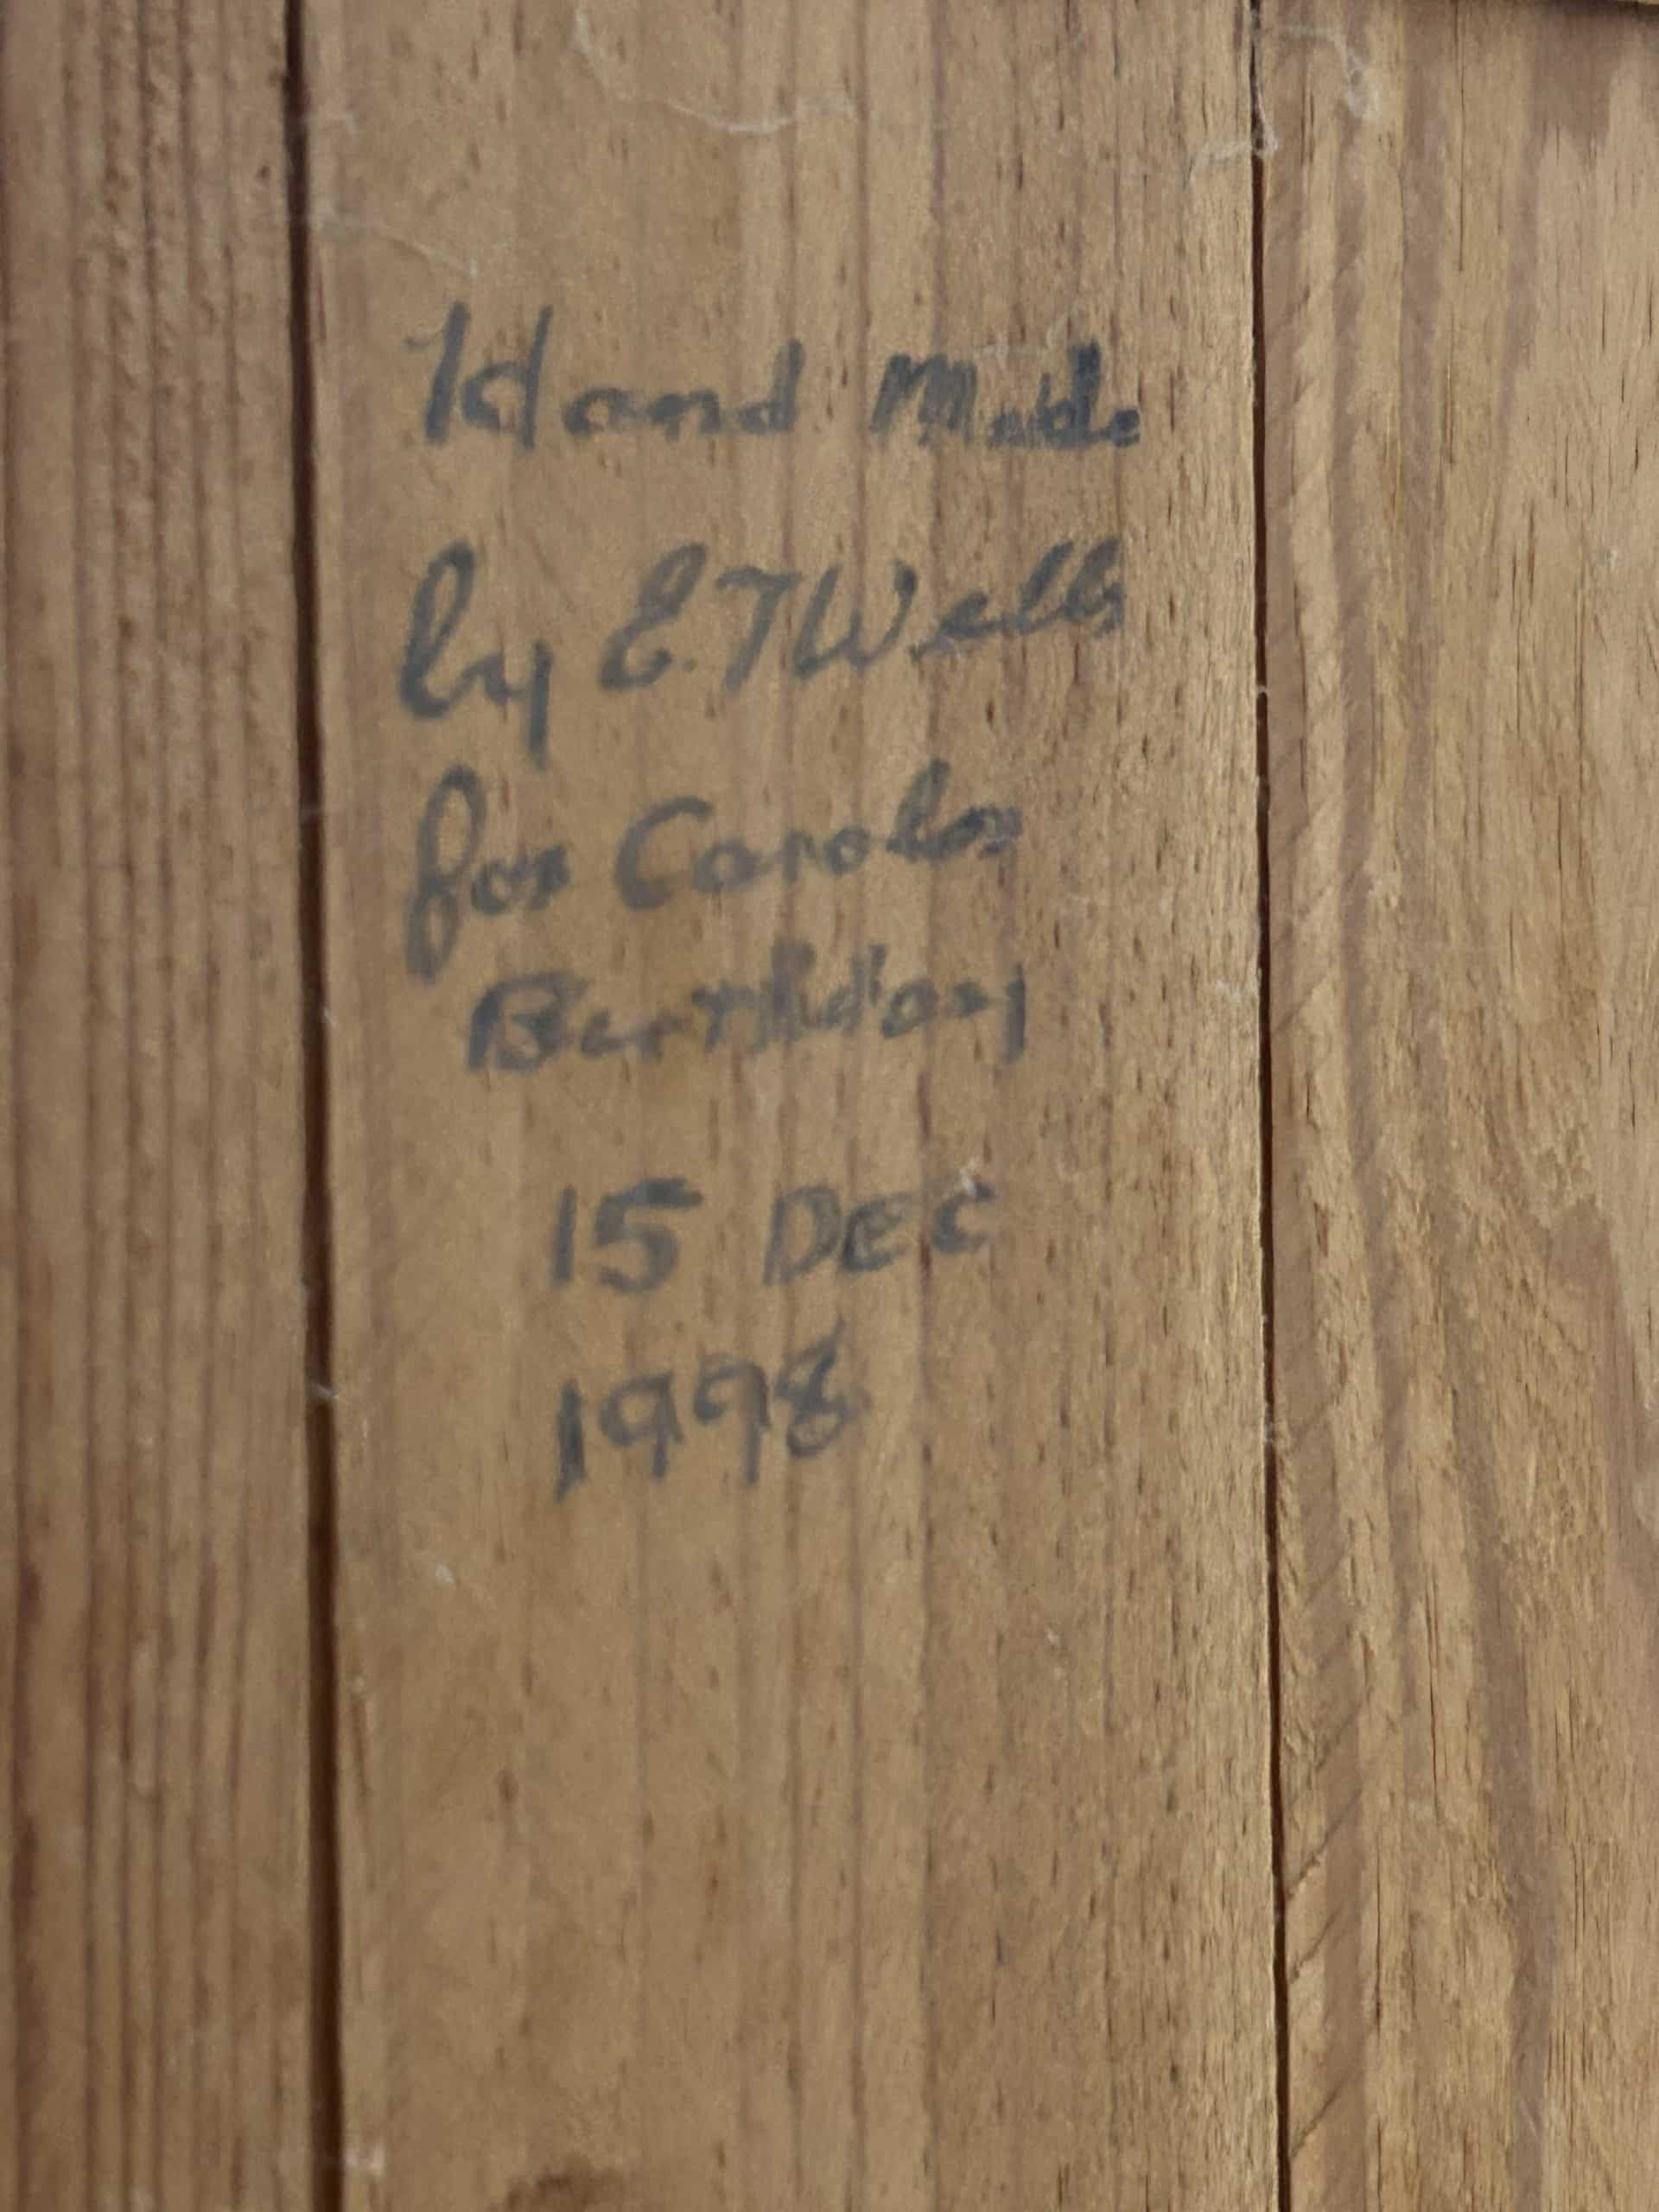 Hand Made
by E.T Wells
for Carols
Birthday
15 DEC
1998